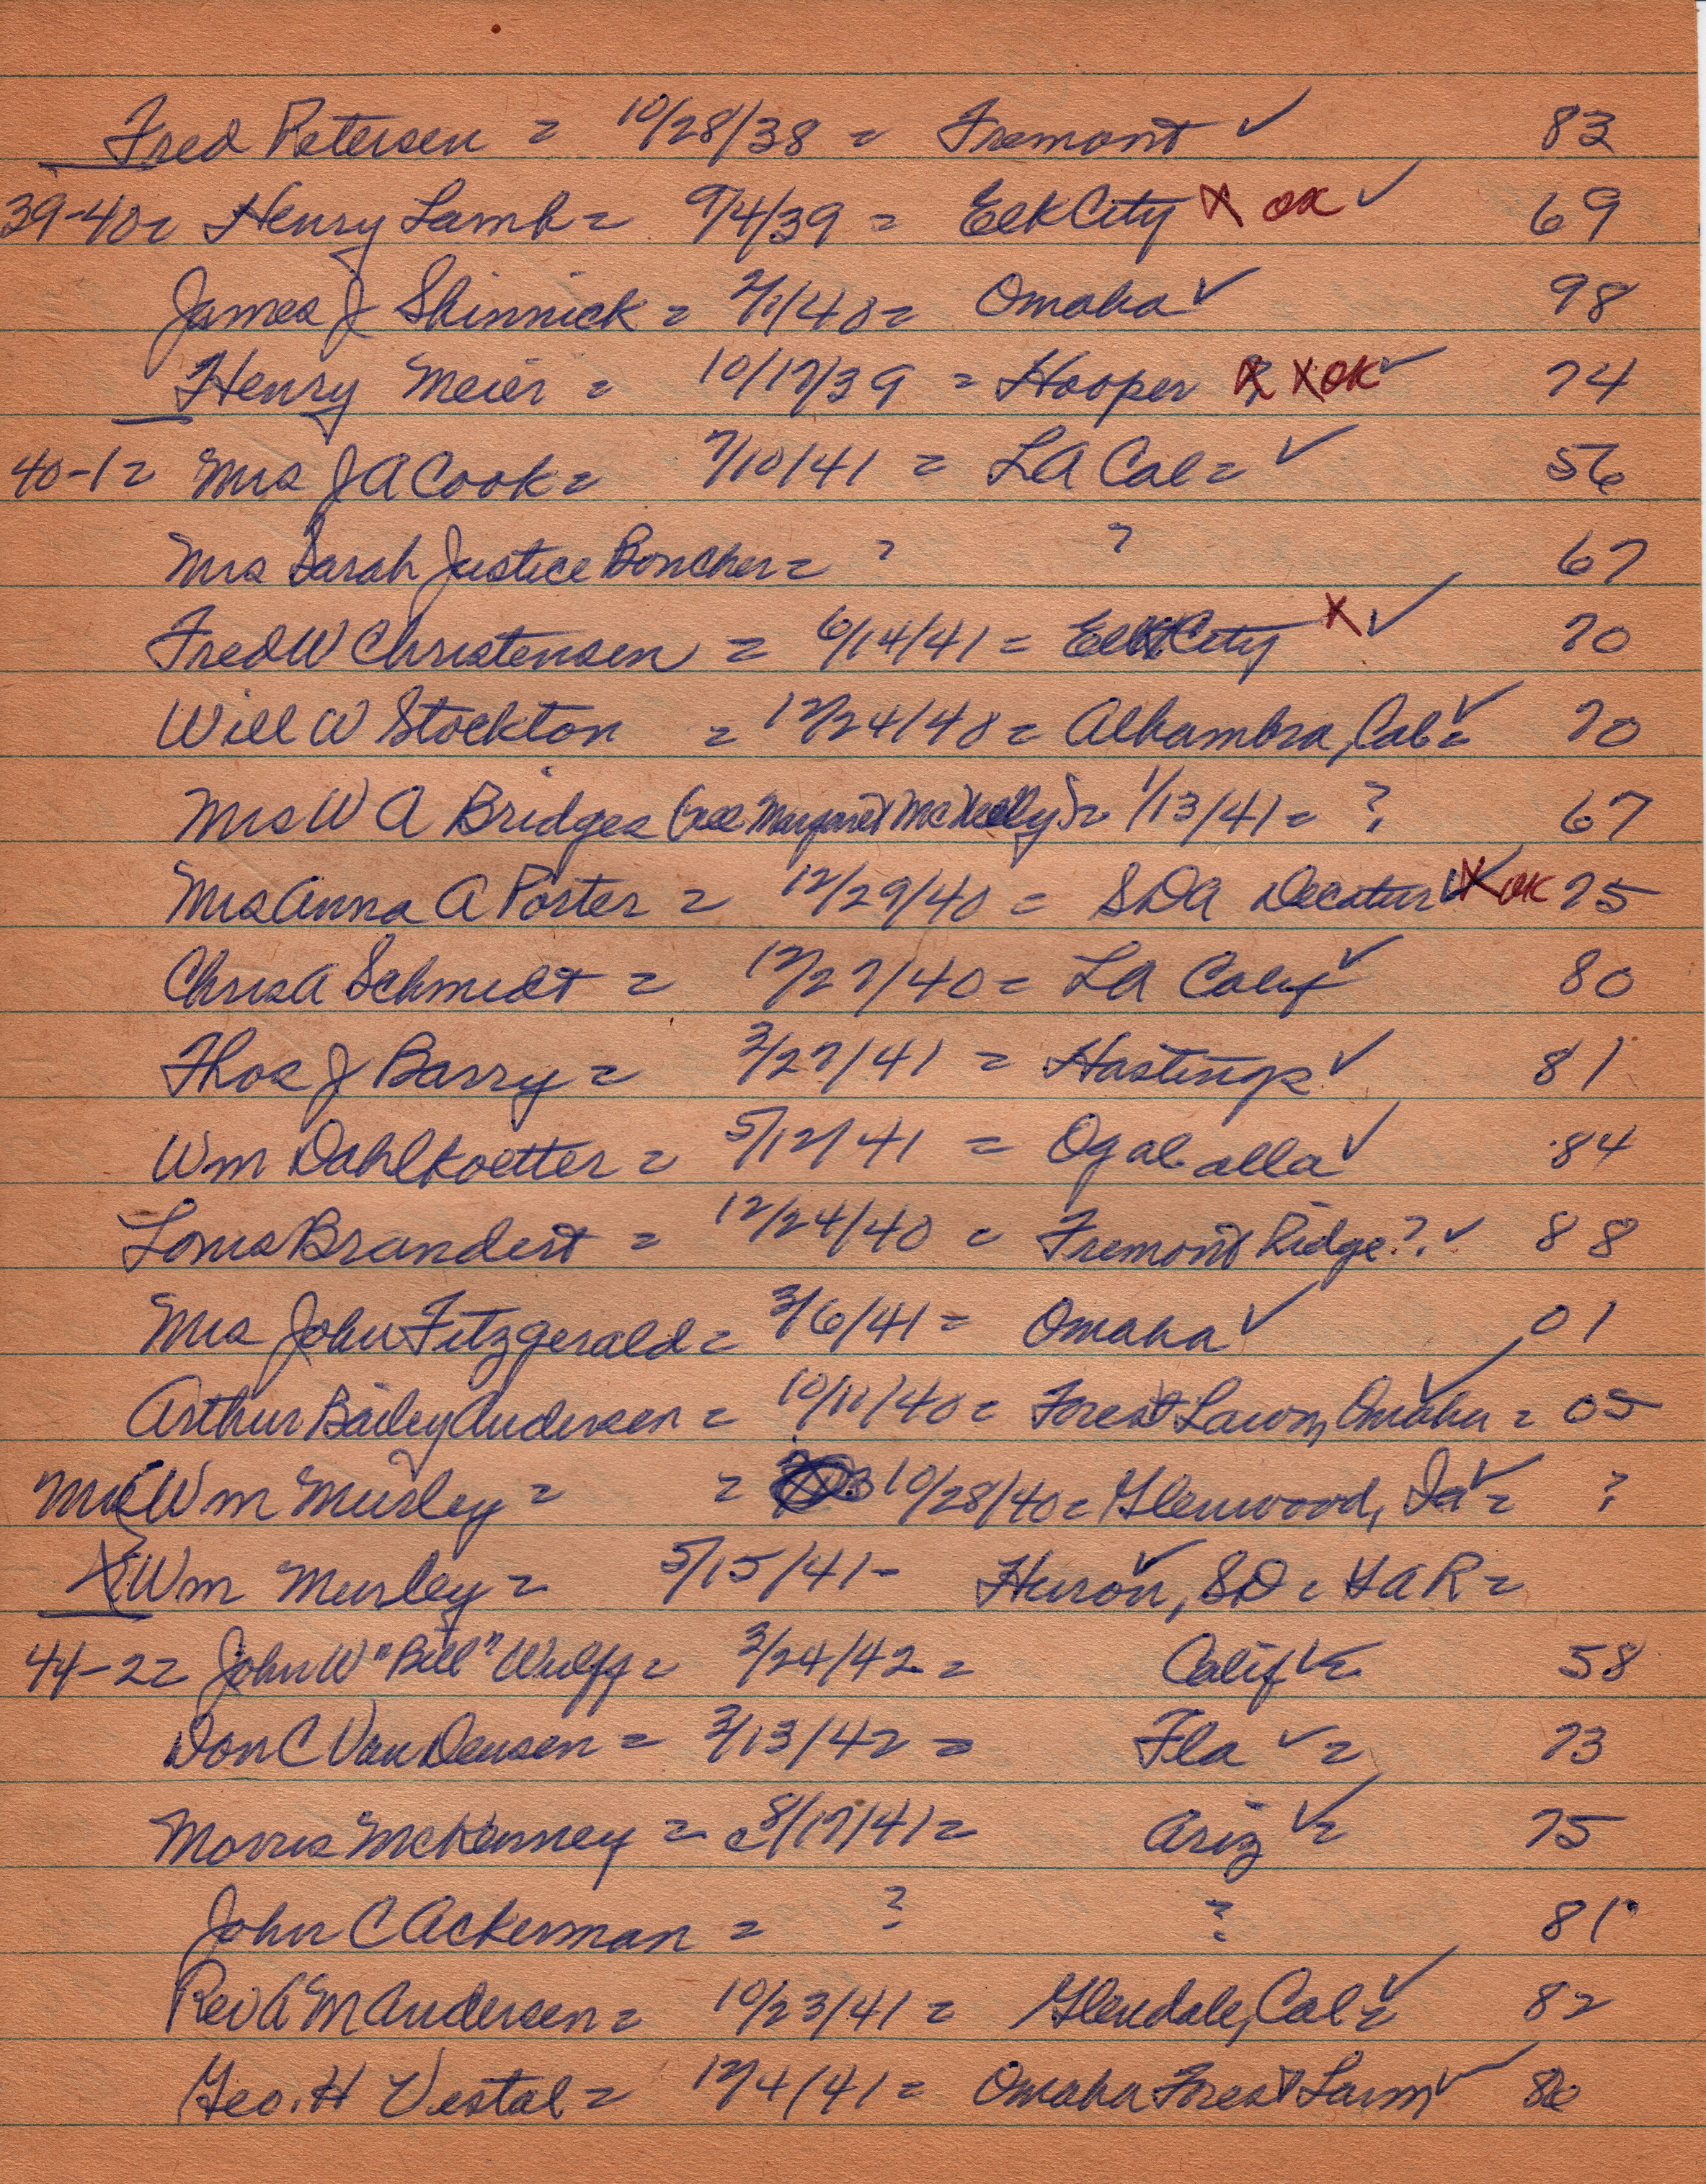 Fred Petersen = 10/28/38 = Fremont ✓ 83
39-40= Henry Lamb = 9/4/39 = Elk City X OK ✓ 69
James J Shinnick = 2/1/40 = Omaha ✓ 98
Henry Meier = 10/17/39 = Hooper X X OK ✓ 74
40-1= Mrs J A Cook = 7/10/41 = LA Cal = ✓ 56
Mrs Sarah Justice Boucher = ? ? 67
Fred W Christensen = 6/14/41 = Elk City X ✓ 70
Will W Stockton = 12/24/40 = Alhambra, Cal ✓ = 70
Mrs W A Bridges (nee Margaret) = 1/13/41 = ? 67
Mrs Anna A Porter = 12/29/40 = SDA Decatur ✓ X OK 75
Chris A Schmidt = 12/27/40 = LA Calif ✓ 80
Thos J Barry = 3/27/41 = Hastings ✓ 81
Wm Dahlkoetter = 5/12/41 = Ogalalla ✓ 84
Louis Brandert = 12/24/40 = Fremont Ridge? ✓ 88
Mrs John Fitzgerald = 3/6/41 = Omaha ✓ 01
Arthur Bailey Andersen = 10/11/40 = Forest Lawn, Omaha ✓ = 05
Mrs Wm Murley = = 10/28/40 = Glenwood, Ia ✓ = ?
Wm Murley = 5/15/41 - Huron ✓, SD = GAR =
44-2= John W "Bill" Wulff = 3/24/42 = Calif ✓ = 58
Don C Van Deusen = 3/13/42 = Fla ✓ = 73
Morris McKenney = 8/17/41 = Ariz ✓ = 75
John C Ackerman = ? ? 81
Rev A M Andersen = 10/23/41 = Glendale, Cal ✓ = 82
Geo. H Vestal = 12/4/41 = Omaha Forest Lawn ✓ 86